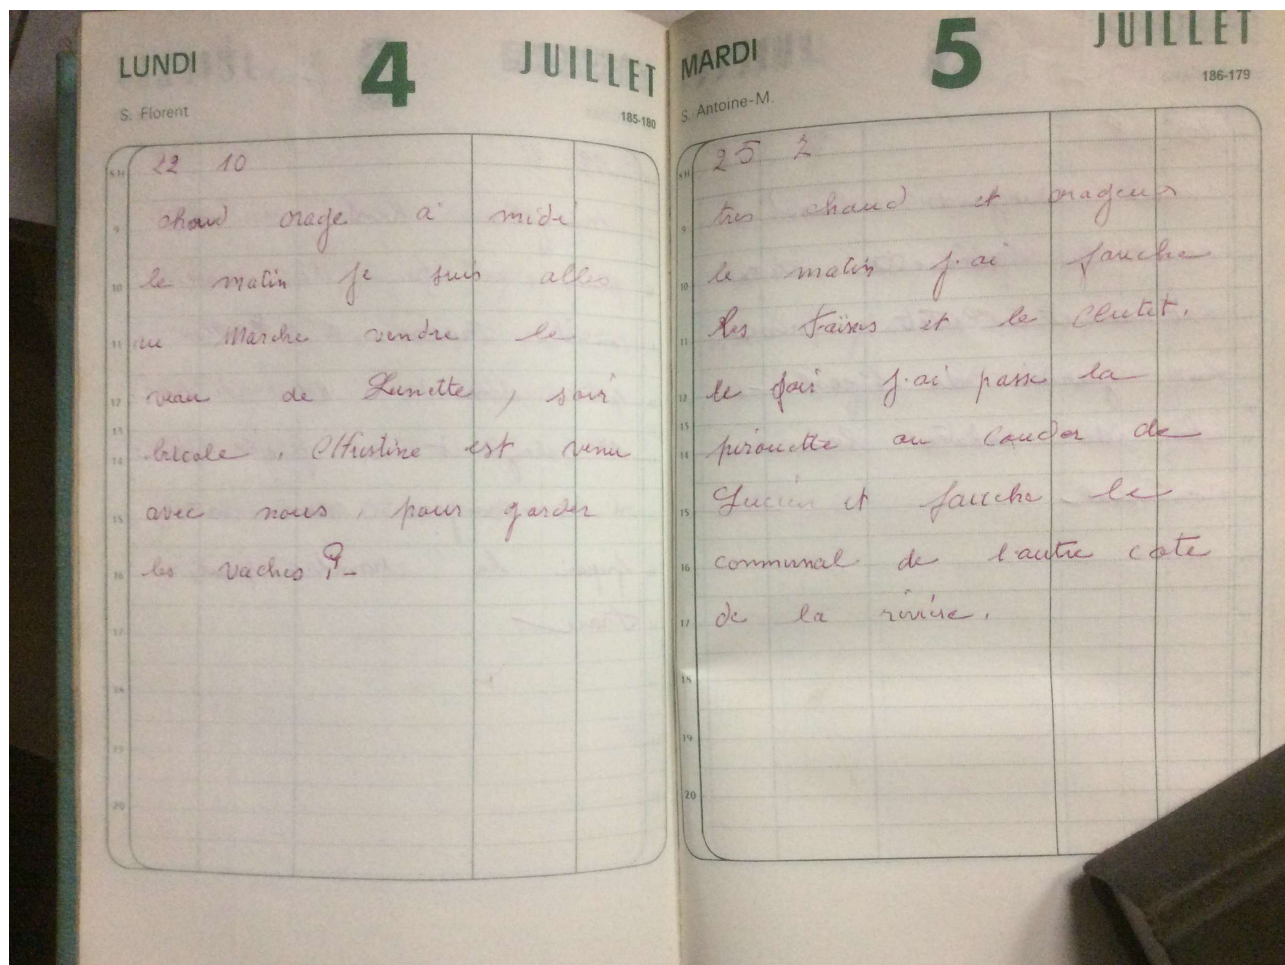 LUNDI 4 JUILLET
S. Florent 185-180
22 10
chaud orage a midi
le matin je suis alles
au Marche vendre le
veau de Lunette, soir
bricole. Christine est venu
avec nous, pour garder
les vaches ?-
8H
9
10
11
12
13
14
15
16
17
18
19
20
MARDI 5 JUILLET
S. Antoine-M. 186-179
25 2
tres chaud et orageux
le matin j'ai fauche
les et le
le soir j'ai passe la
pirouette au Couder de
Lucien et fauche le
communal de l'autre cote
de la riviere.
8H
9
10
11
12
13
14
15
16
17
18
19
20